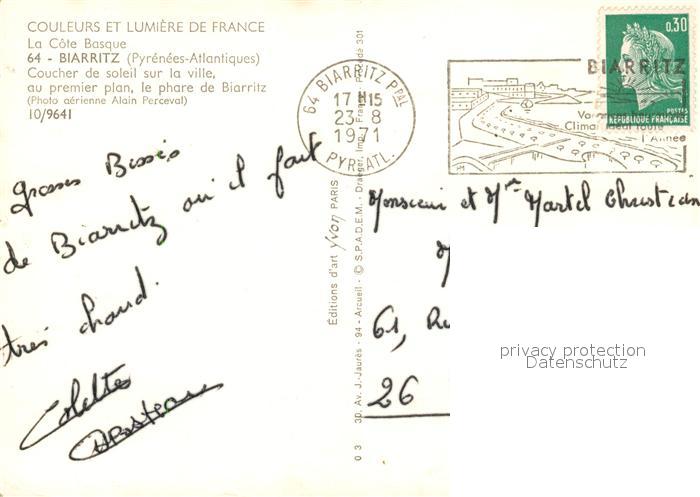 COULEURS ET LUMIÈRE DE FRANCE
La Côte Basque
64 - BIARRITZ (Pyrénées-Atlantiques)
Coucher de soleil sur la ville,
au premier plan, le phare de Biarritz
(Photo aérienne Alain Perceval)
10/9641
grosses Bisses
de Biarritz où il fait
très chaud.
Colette
Éditions d'art yvon PARIS
0 3 30, Av. J.-Jaurès - 94 - Arcueil - © S.P.A.D.E.M. - Draeger, Imp. France 301
64 BIARRITZ Ppal
17H15
23-8
1971
PYR-ATL.
BIARRITZ
Climat idéal toute
l'Année
0,30
POSTES
RÉPUBLIQUE FRANÇAISE
Monsieur et Mme Martel Christian
61, Ru
26
privacy protection
Datenschutz